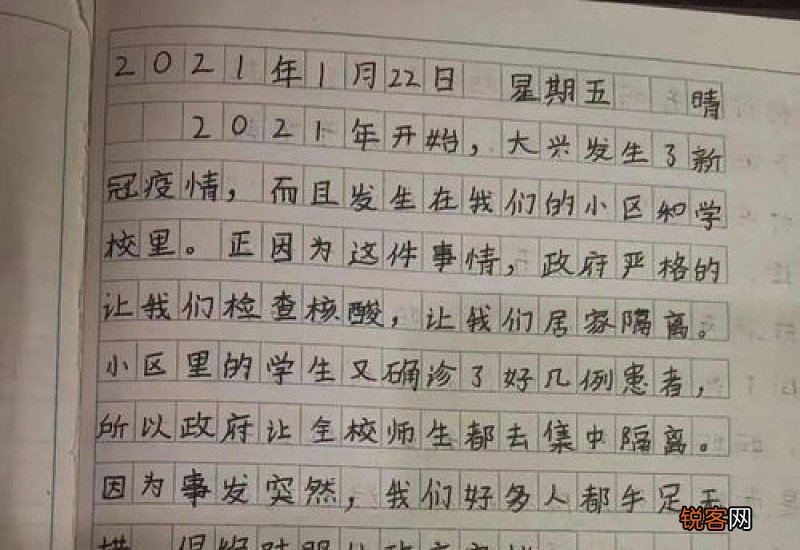 2021年1月22日 星期五 晴
2021年开始，大兴发生了新
冠疫情，而且发生在我们的小区和学
校里。正因为这件事情，政府严格的
让我们检查核酸，让我们居家隔离。
小区里的学生又确诊了好几例患者，
所以政府让全校师生都去集中隔离。
因为事发突然，我们好多人都手足无
锐客网